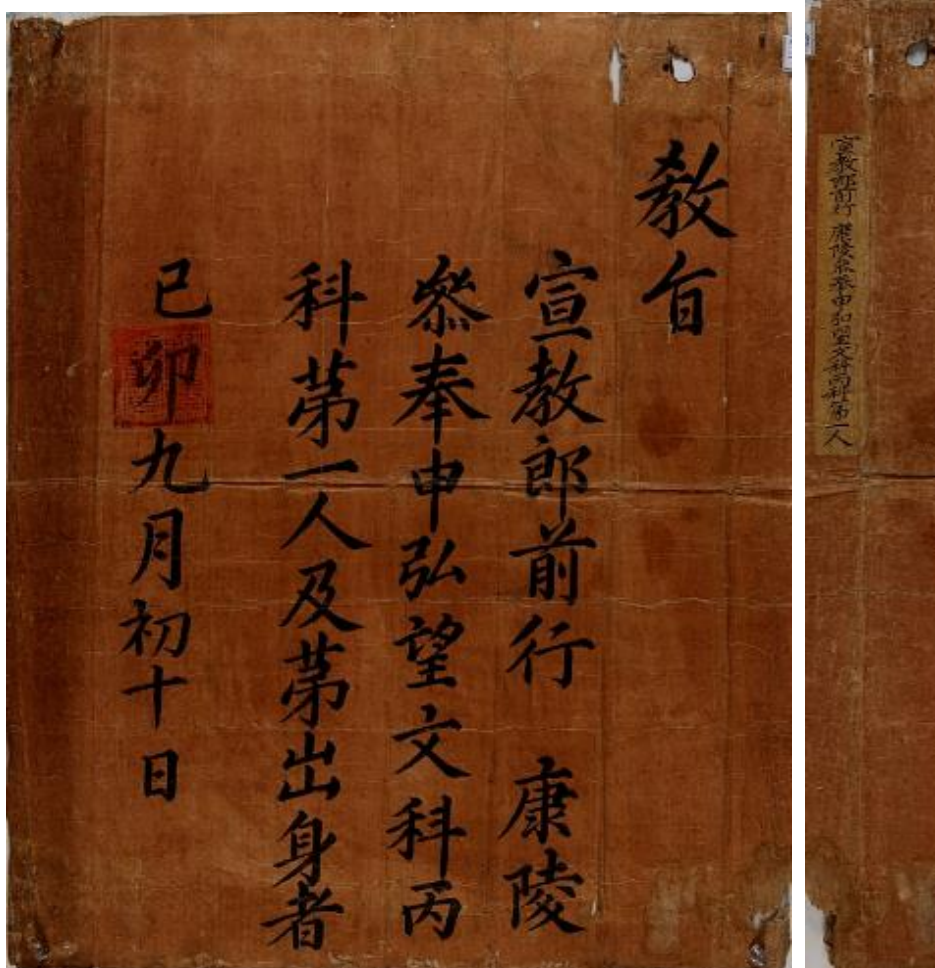 敎旨
宣敎郎前行 康陵
叅奉申弘望文科丙
科第一人及第出身者
己卯九月初十日
宣敎郎前行 康陵叅奉申弘望文科丙科第一人